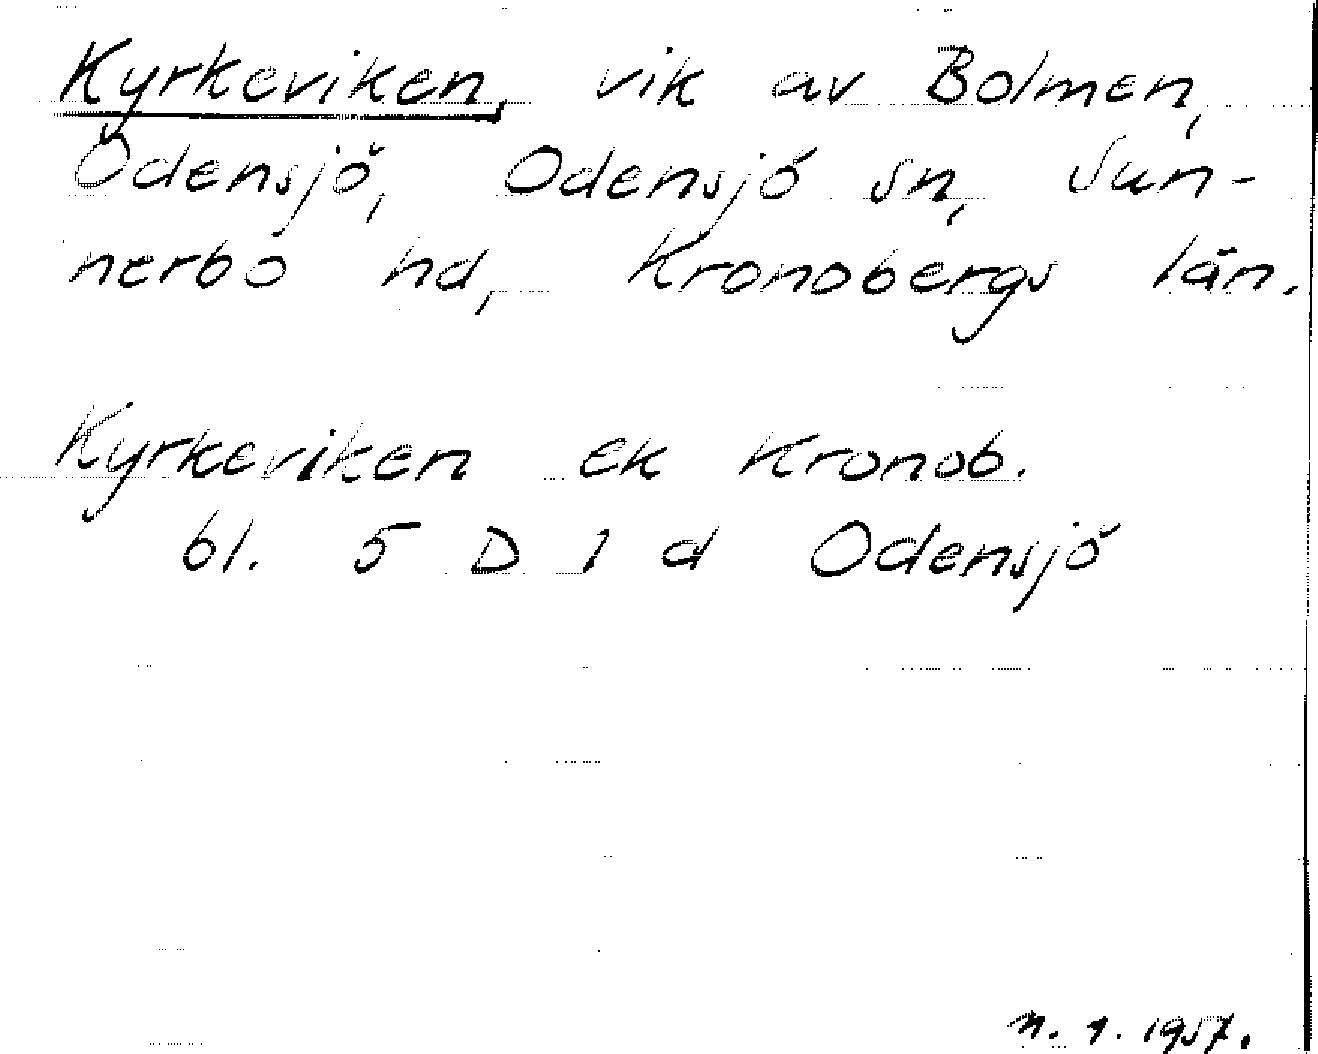 Kyrkeviken, vik av Bolmen,
Odensjö, Odensjö sn, Sun-
nerbo hd, Kronobergs län.
Kyrkeviken ek Kronob.
bl. 5 D 1 d Odensjö
n. 1. 1957.